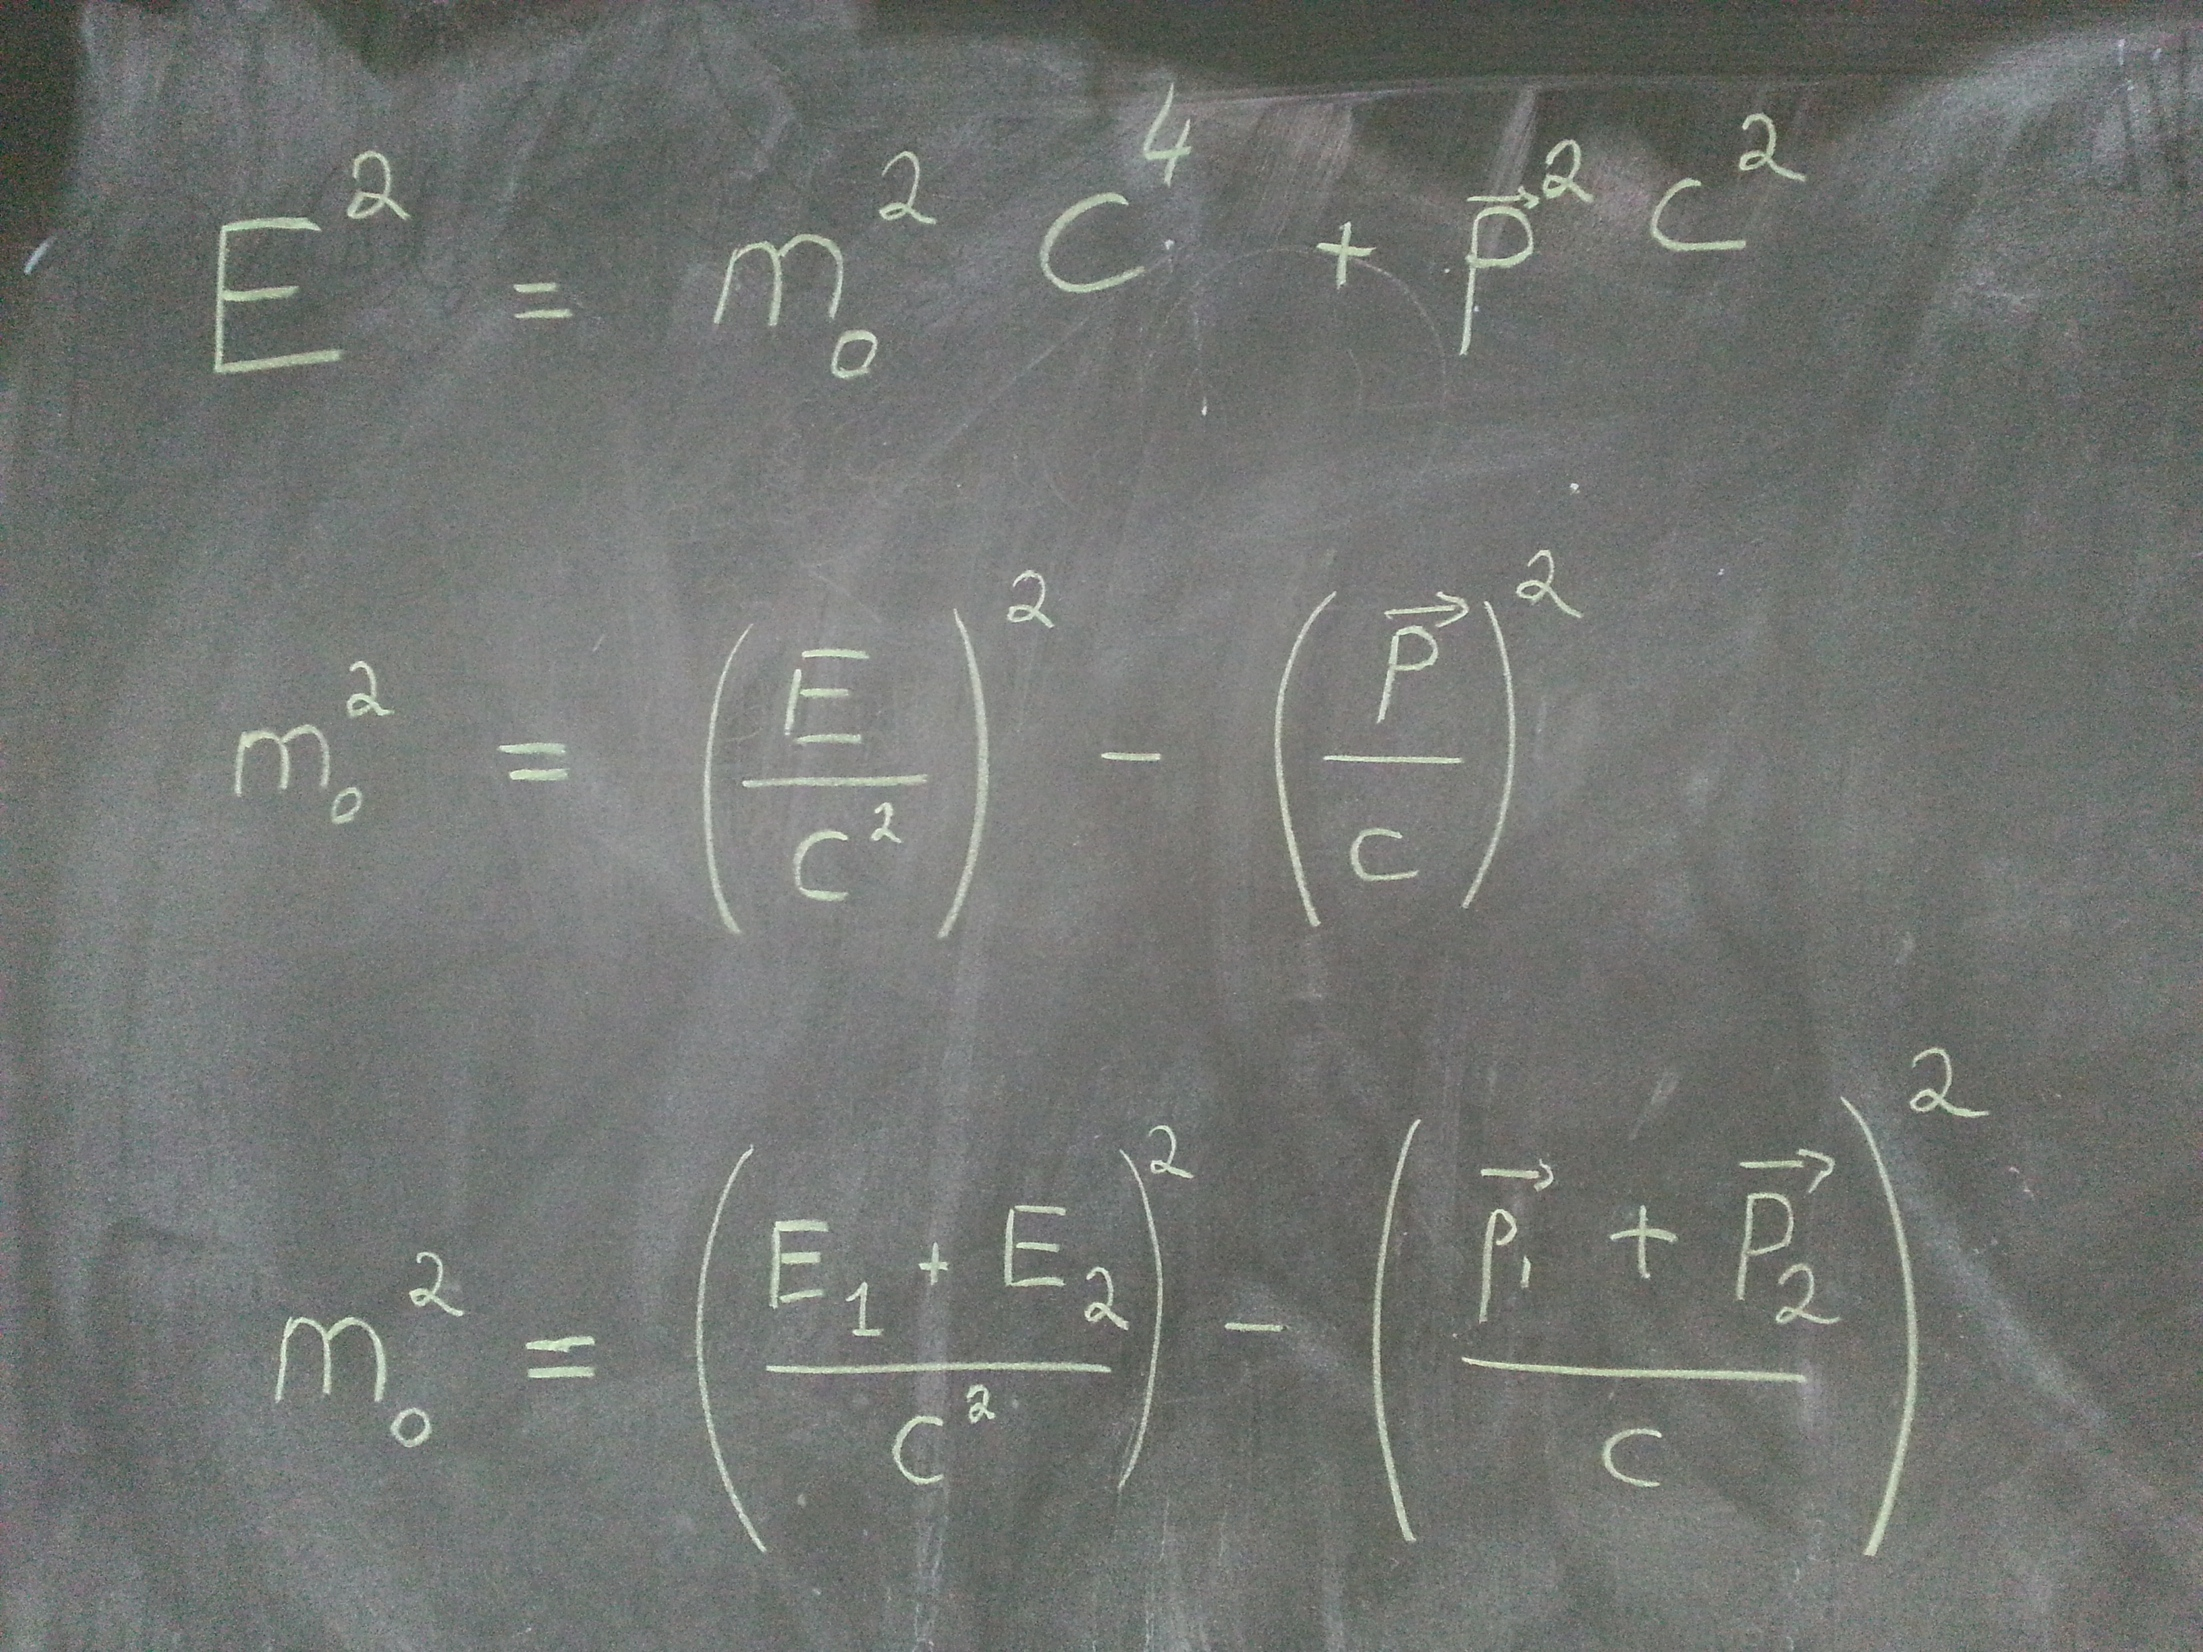 E² = m₀² C⁴ + p⃗² c²
m₀² = (E/C²)² − (p⃗/c)²
m₀² = ((E₁ + E₂)/C²)² − ((p⃗₁ + p⃗₂)/c)²